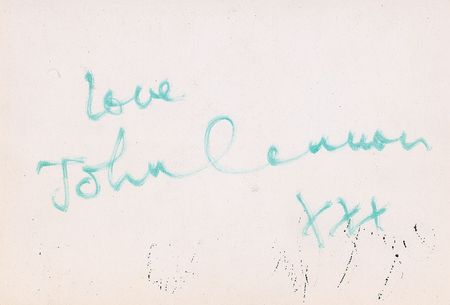 love
John Lennon
xxx